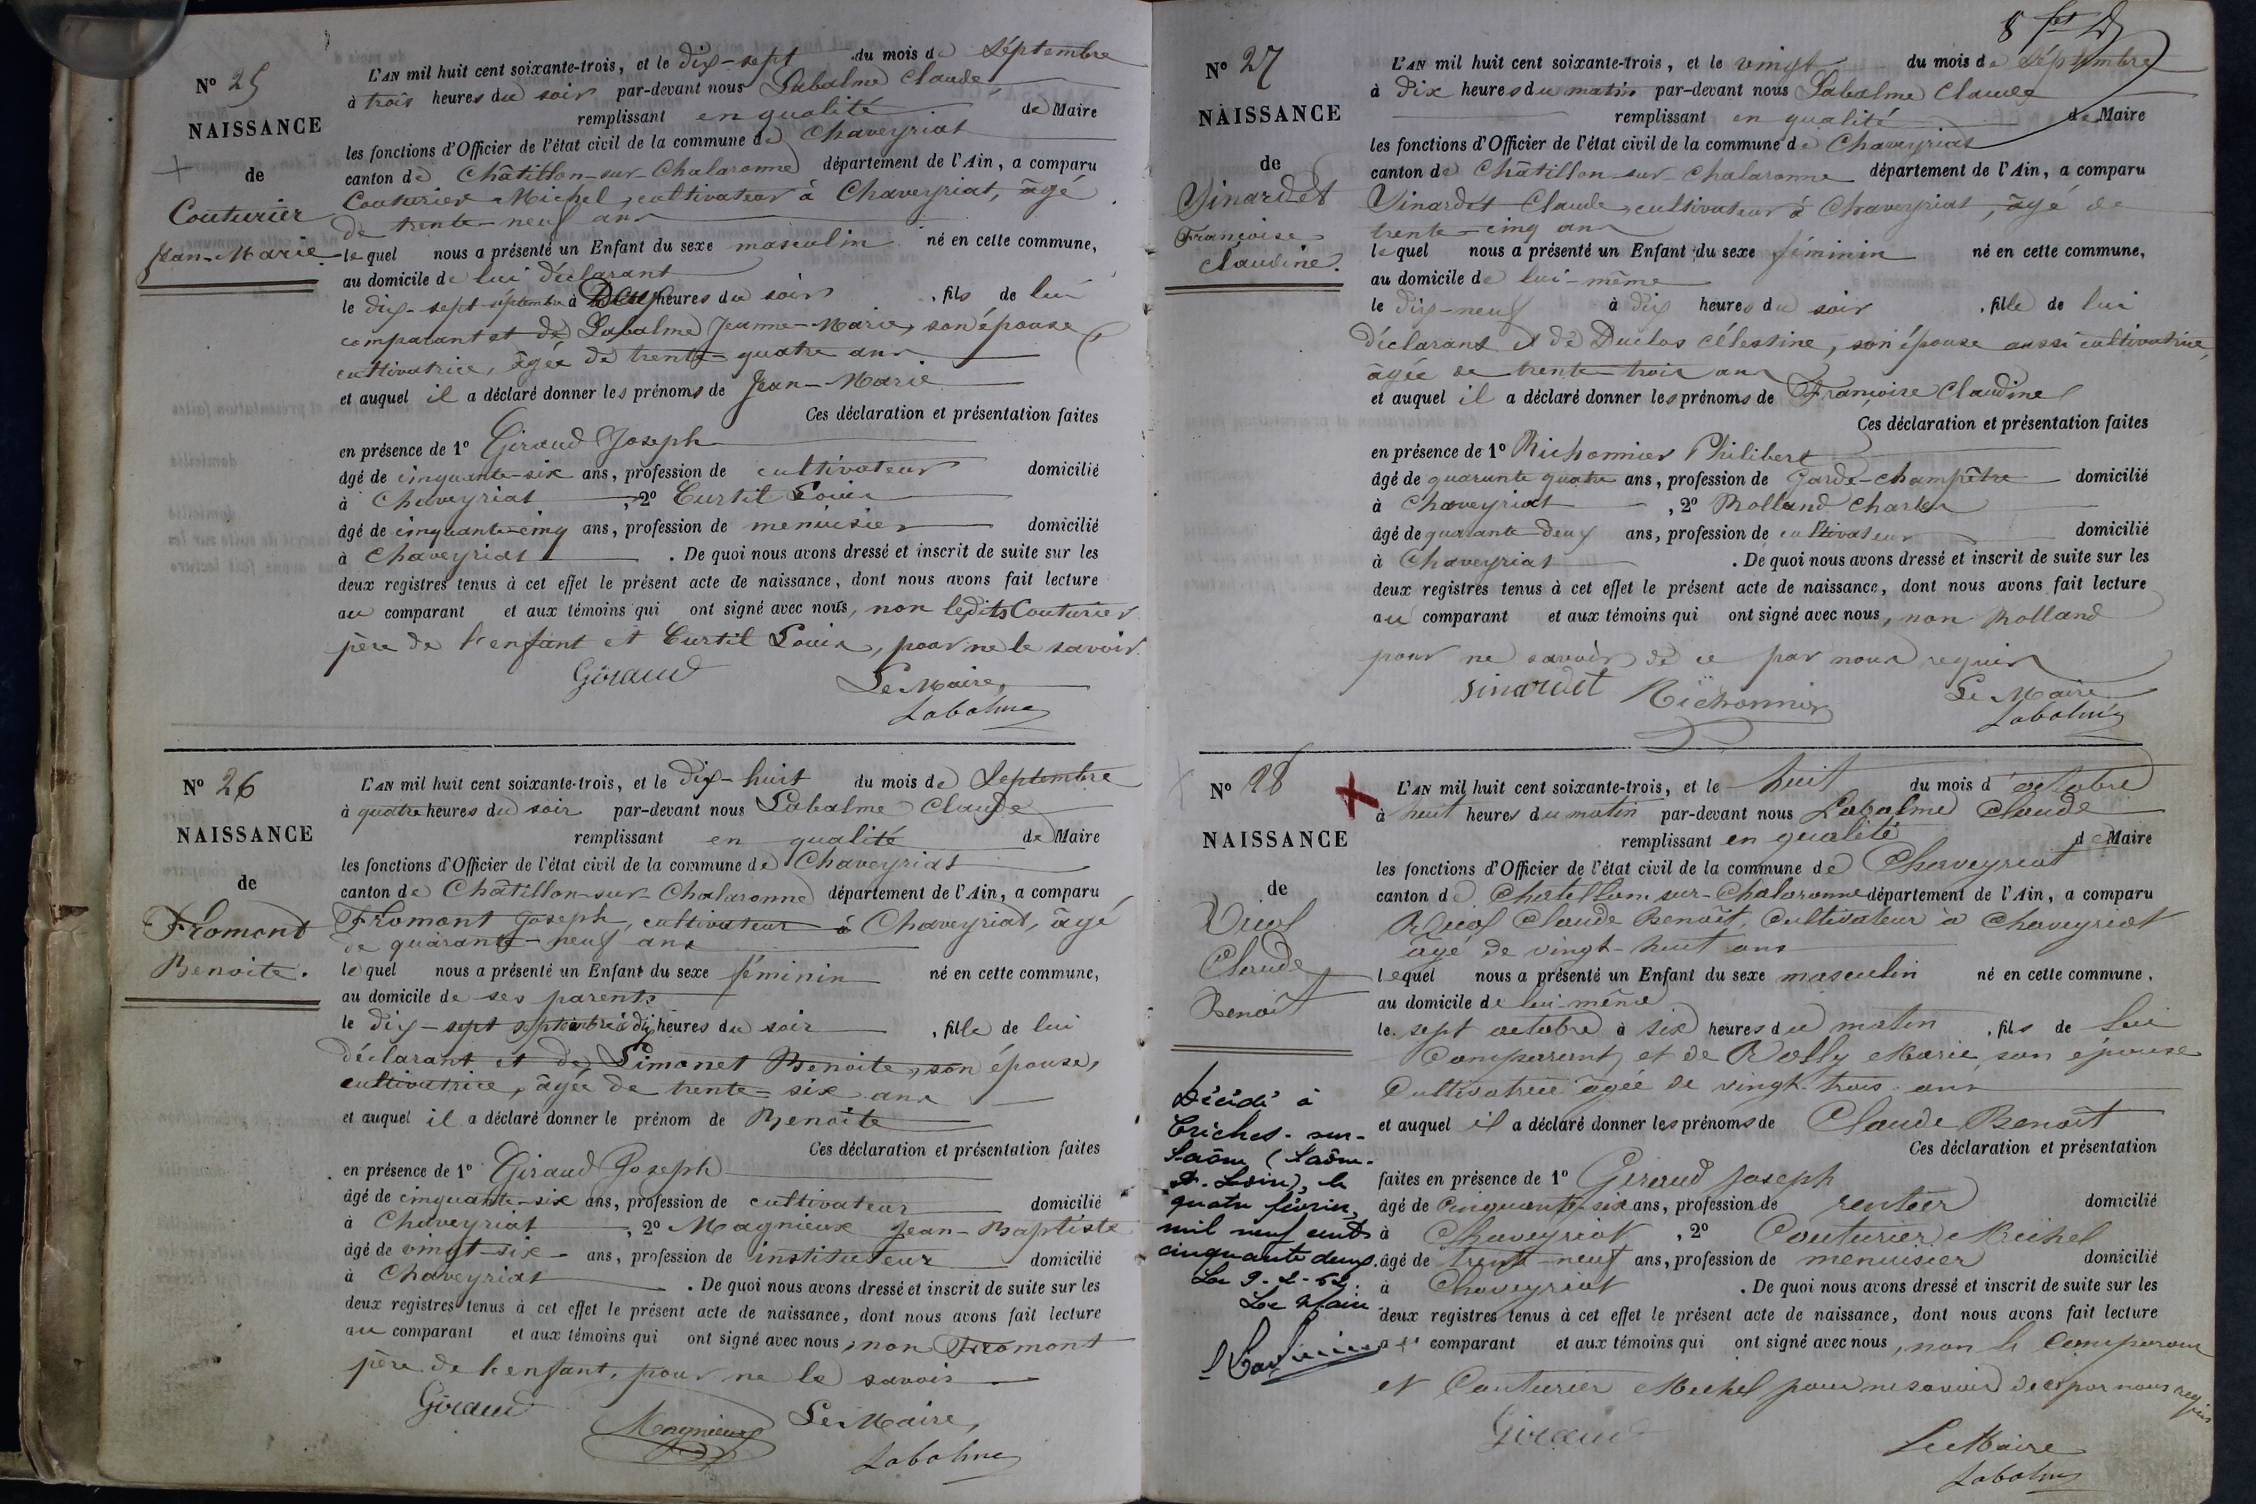 N° 25
NAISSANCE
de
Couturier
Jean-Marie
L'AN mil huit cent soixante-trois, et le dix-sept du mois de Séptembre
à trois heures du soir par-devant nous Labalme Claude
remplissant en qualité de Maire
les fonctions d'Officier de l'état civil de la commune de Chaveyriat
canton de Châtillon-sur-Chalaronne département de l'Ain, a comparu
Couturier Michel, cultivateur à Chaveyriat, âgé
de trente-neuf ans
lequel nous a présenté un Enfant du sexe masculin né en cette commune,
au domicile de lui déclarant
le dix-sept septembre à Deux heures du soir, fils de lui
comparant et de Labalme Jeanne-Marie, son épouse
cultivatrice, âgée de trente-quatre ans.
et auquel il a déclaré donner les prénoms de Jean-Marie
Ces déclaration et présentation faites
en présence de 1° Giraud Joseph
âgé de cinquante-six ans, profession de cultivateur domicilié
à Chaveyriat, 2° Curtil Louis
âgé de cinquante-cinq ans, profession de menuisier domicilié
à Chaveyriat. De quoi nous avons dressé et inscrit de suite sur les
deux registres tenus à cet effet le présent acte de naissance, dont nous avons fait lecture
au comparant et aux témoins qui ont signé avec nous, non lesdits Couturier
père de l'enfant et Curtil Louis, pour ne le savoir
Giraud
Le Maire,
Labalme
N° 26
NAISSANCE
de
Fromont
Benoite.
L'AN mil huit cent soixante-trois, et le dix-huit du mois de Septembre
à quatre heures du soir par-devant nous Labalme Claude
remplissant en qualité de Maire
les fonctions d'Officier de l'état civil de la commune de Chaveyriat
canton de Châtillon-sur-Chalaronne département de l'Ain, a comparu
Fromont Joseph, cultivateur à Chaveyriat, âgé
de quarante-neuf ans
lequel nous a présenté un Enfant du sexe féminin né en cette commune,
au domicile de ses parents
le dix-sept septembre à dix heures du soir, fille de lui
déclarant et de Limonet Benoite, son épouse,
cultivatrice, âgée de trente-six ans
et auquel il a déclaré donner le prénom de Benoite
Ces déclaration et présentation faites
en présence de 1° Giraud Joseph
âgé de cinquante-six ans, profession de cultivateur domicilié
à Chaveyriat, 2° Magnieux Jean-Baptiste
âgé de vingt-six ans, profession de instituteur domicilié
à Chaveyriat. De quoi nous avons dressé et inscrit de suite sur les
deux registres tenus à cet effet le présent acte de naissance, dont nous avons fait lecture
au comparant et aux témoins qui ont signé avec nous, non Fromont
père de l'enfant, pour ne le savoir
Giraud
Magnieux
Le Maire,
Labalme
N° 27
NAISSANCE
de
Sinardet
Françoise
Claudine.
L'AN mil huit cent soixante-trois, et le vingt du mois de Séptembre
à dix heures du matin par-devant nous Labalme Claude
remplissant en qualité de Maire
les fonctions d'Officier de l'état civil de la commune de Chaveyriat
canton de Châtillon-sur-Chalaronne département de l'Ain, a comparu
Sinardet Claude, cultivateur à Chaveyriat, âgé de
trente-cinq ans
lequel nous a présenté un Enfant du sexe féminin né en cette commune,
au domicile de lui-même
le dix-neuf à dix heures du soir, fille de lui
déclarant et de Duclos Célestine, son épouse aussi cultivatrice,
âgée de trente-trois ans
et auquel il a déclaré donner les prénoms de Françoise Claudine
Ces déclaration et présentation faites
en présence de 1° Richonnier Philibert
âgé de quarante quatre ans, profession de Garde-champêtre domicilié
à Chaveyriat, 2° Rolland Charles
âgé de quarante-deux ans, profession de cultivateur domicilié
à Chaveyriat. De quoi nous avons dressé et inscrit de suite sur les
deux registres tenus à cet effet le présent acte de naissance, dont nous avons fait lecture
au comparant et aux témoins qui ont signé avec nous, non Rolland
pour ne savoir de ce par nous requis
Sinardet
Richonnier
Le Maire
Labalme
N° 28
NAISSANCE
de
Claude
Benoît
L'AN mil huit cent soixante-trois, et le huit du mois d'octobre
à huit heures du matin par-devant nous Labalme Claude
remplissant en qualité de Maire
les fonctions d'Officier de l'état civil de la commune de Chaveyriat
canton de Chatillon-sur-Chalaronne département de l'Ain, a comparu
Claude Benoît, Cultivateur à Chaveyriat
âgé de vingt-huit ans
lequel nous a présenté un Enfant du sexe masculin né en cette commune,
au domicile de lui-même
le sept octobre à six heures du matin, fils de lui
Comparant, et de Rolly Marie, son épouse
Cultivatrice âgée de vingt-trois ans
et auquel il a déclaré donner les prénoms de Claude Benoît
Ces déclaration et présentation
faites en présence de 1° Giraud Joseph
âgé de Cinquante-six ans, profession de rentier domicilié
à Chaveyriat, 2° Couturier Michel
âgé de trente-neuf ans, profession de menuisier domicilié
à Chaveyriat. De quoi nous avons dressé et inscrit de suite sur les
deux registres tenus à cet effet le présent acte de naissance, dont nous avons fait lecture
au comparant et aux témoins qui ont signé avec nous, non le Comparant
et Couturier Michel pour ne savoir de ce par nous requis
Giraud
Le Maire
Labalme
Décédé à
Crêches-sur-
Saône (Saône-
&-Loire), le
quatre février
mil neuf cent
cinquante deux.
Le 9-2-52.
Le Maire